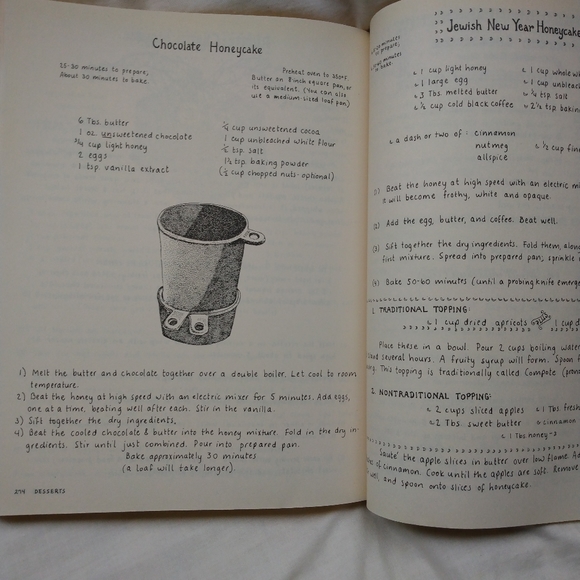 Chocolate Honeycake
25-30 minutes to prepare,
About 30 minutes to bake.
Preheat oven to 350°F.
Butter an 8 inch square pan, or
its equivalent. (You can also
use a medium-sized loaf pan)
6 Tbs. butter
1 oz. unsweetened chocolate
3/4 cup light honey
2 eggs
1 tsp. vanilla extract
1/4 cup unsweetened cocoa
1 cup unbleached white flour
1/2 tsp. salt
1 1/2 tsp. baking powder
(1/2 cup chopped nuts-optional)
1) Melt the butter and chocolate together over a double boiler. Let cool to room
temperature.
2) Beat the honey at high speed with an electric mixer for 5 minutes. Add eggs,
one at a time, beating well after each. Stir in the vanilla.
3) Sift together the dry ingredients.
4) Beat the cooled chocolate & butter into the honey mixture. Fold in the dry in-
gredients. Stir until just combined. Pour into prepared pan.
Bake approximately 30 minutes
(a loaf will take longer).
274 DESSERTS
Jewish New Year Honeycake
minutes
to prepare,
minutes
to bake.
1 cup light honey
1 large egg
3 Tbs. melted butter
cup cold black coffee
1 cup whole w
1 cup unbleac
tsp salt
2 1/2 tsp baking
a dash or two of: cinnamon
nutmeg
allspice
1/2 cup fine
(1) Beat the honey at high speed with an electric m
It will become frothy, white and opaque.
(2) Add the egg, butter, and coffee. Beat well.
(3) Sift together the dry ingredients. Fold them, along
first mixture. Spread into prepared pan; sprinkle
(4) Bake 50-60 minutes (until a probing knife emerge
1. TRADITIONAL TOPPING:
1 cup dried apricots plus 1 cup d
Place these in a bowl. Pour 2 cups boiling water
and several hours. A fruity syrup will form. Spoon
This topping is traditionally called Compote (pron
2. NONTRADITIONAL TOPPING:
2 cups sliced apples
2 Tbs. sweet butter
1 Tbs. fresh
cinnamon
1 Tbs honey
Sauté the apple slices in butter over low flame. Ad
of cinnamon. Cook until the apples are soft. Remove
well, and spoon onto slices of honeycake.